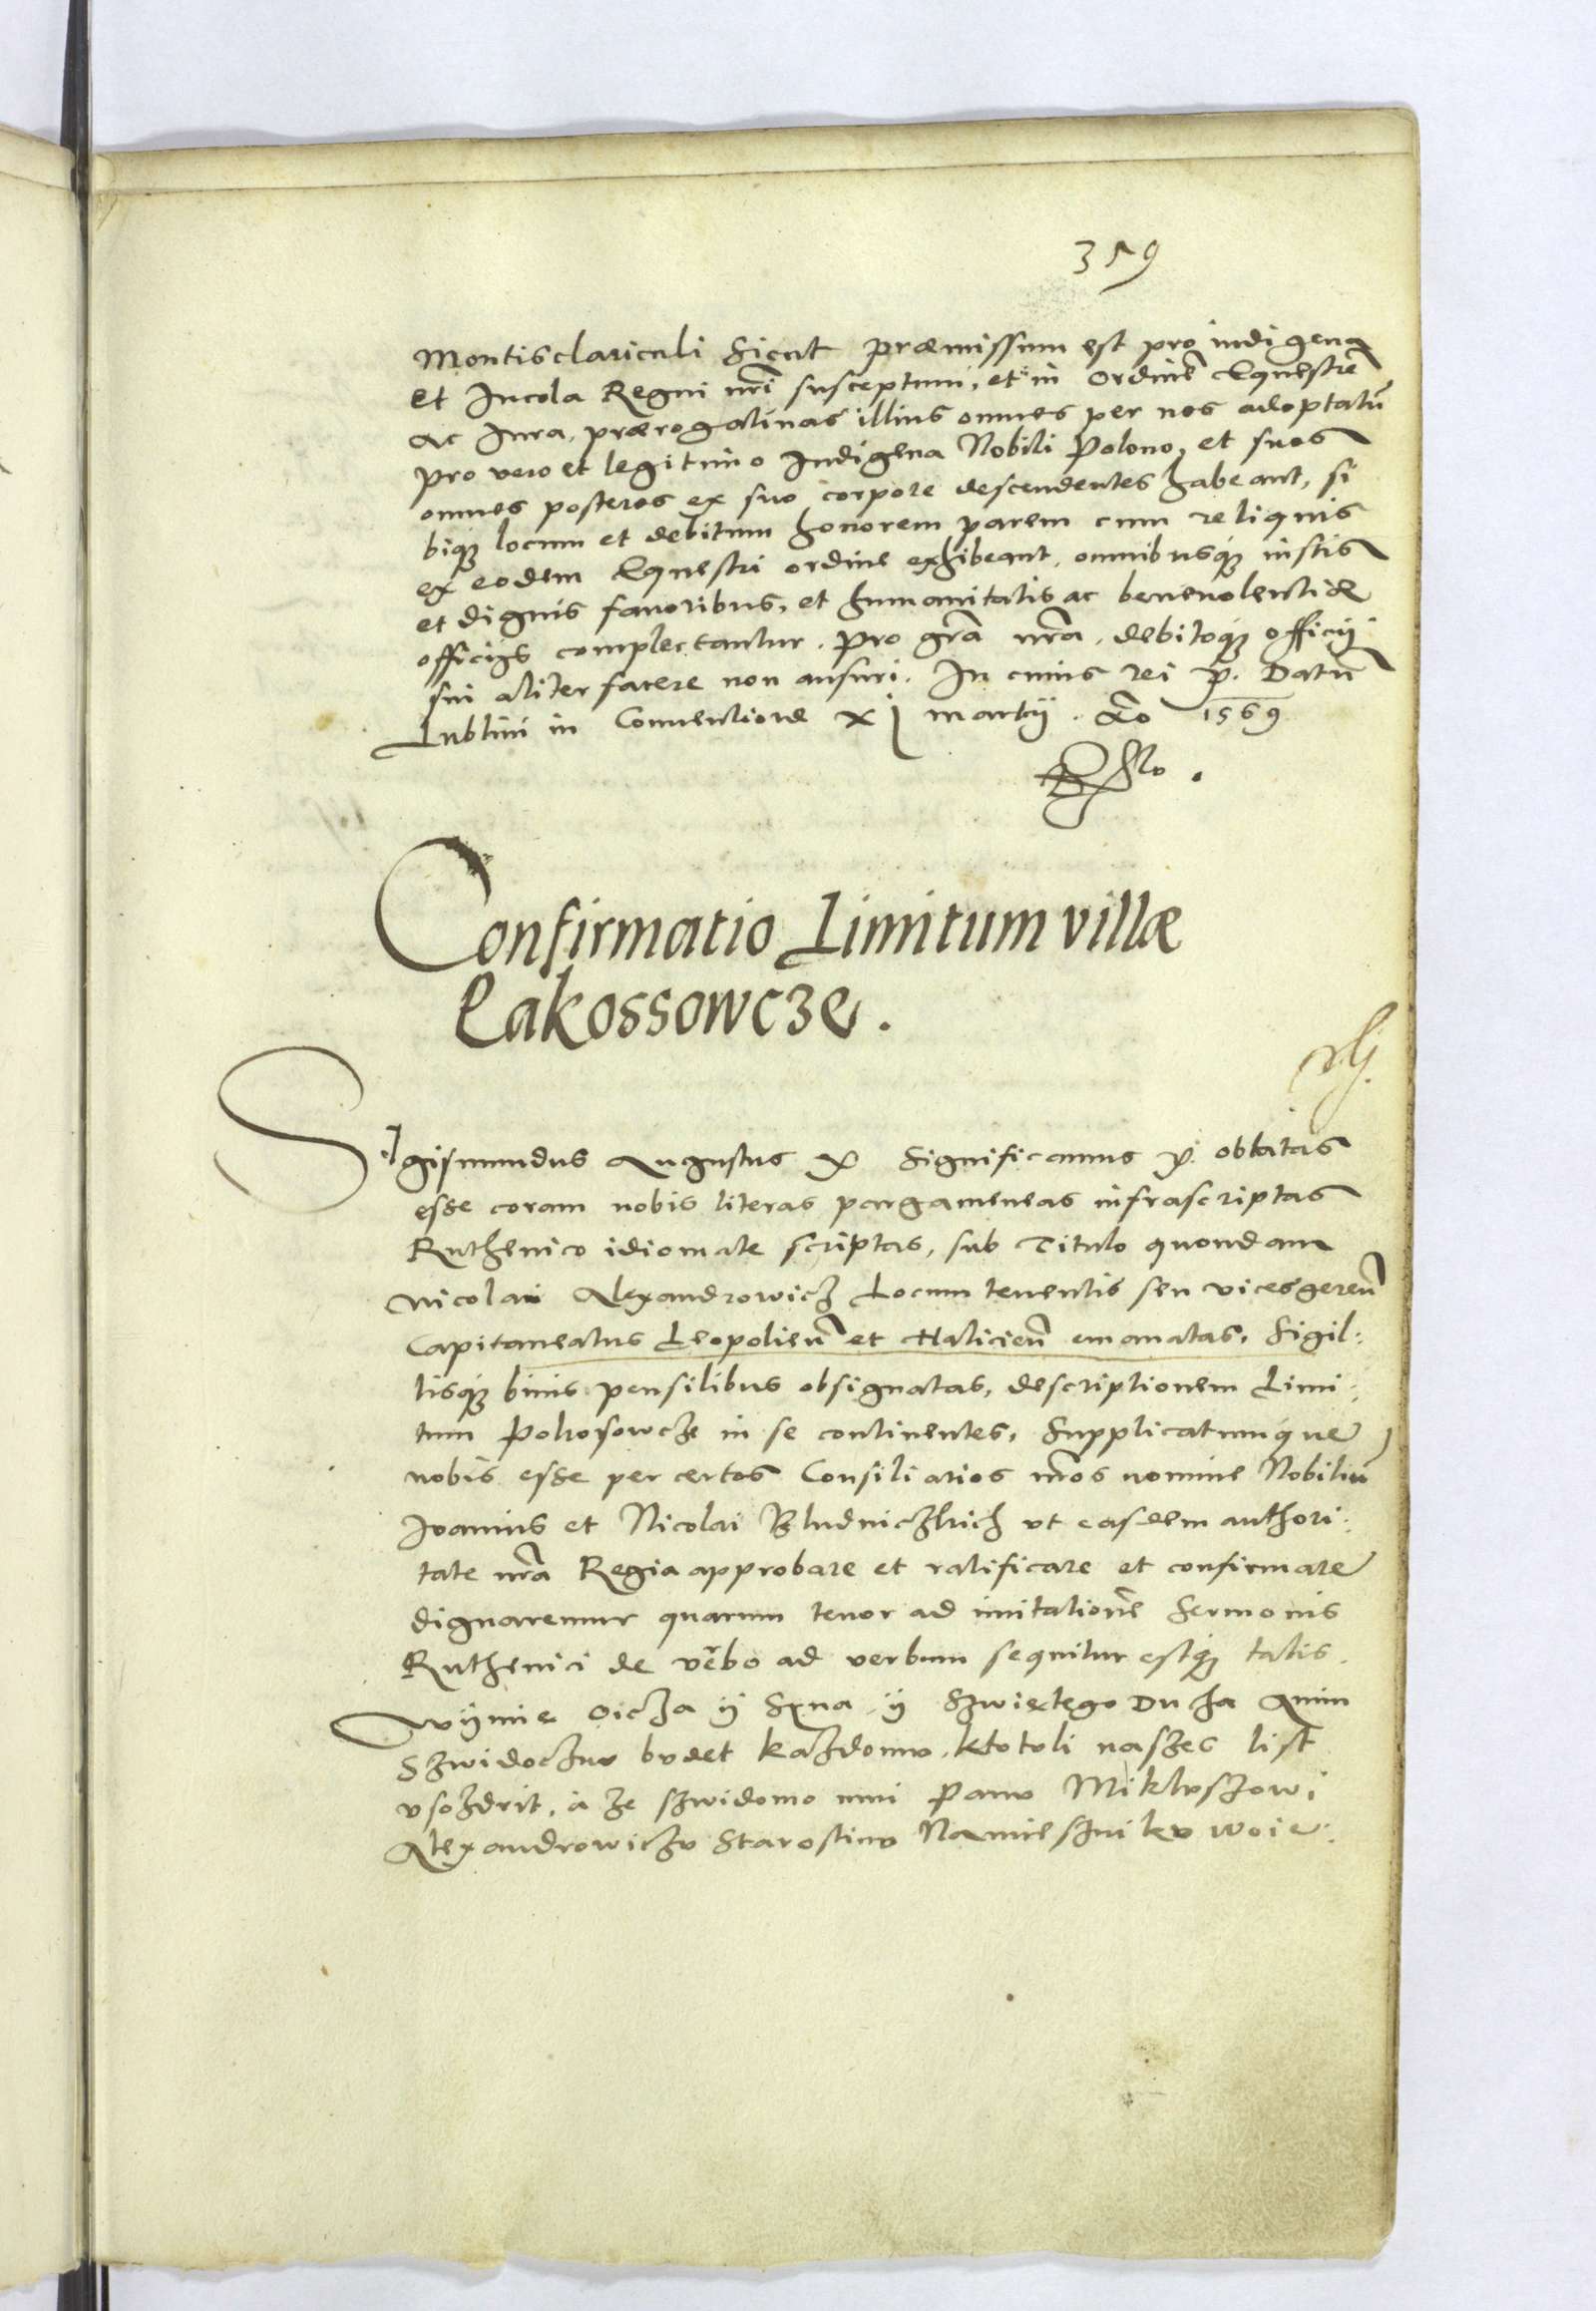 359
Montisclariculi sicut præmissum est pro indigena
et Incola Regni nri susceptum, et in ordinē Equestrē
ac Iura, prærogatiuas illius omnes per nos adoptatū
pro vero et legitimo Indigena Nobili Polono, et suos
omnes posteros ex suo corpore descendentes habeant, si
biq3 locum et debitum honorem parem cum reliquis
ex eodem Equestri ordine exhibeant, omnibusq3 iustis
et dignis fauoribus, et humanitatis ac beneuolentiæ
officijs complectantur. Pro gra nra, debitoq3 officij
sui aliter facere non ausuri. In cuius rei p. Datū
Lublini in Conuentione xj martij. Ao 1569
Confirmatio Limitum villæ
Pakossowcze.
SIgismundus Augustus Significamus p. oblatas
esse coram nobis literas pargameneas infrascriptas
Ruthenico idiomate scriptas, sub Titulo quondam
Nicolai Alexandrowicz Locum tenentis seu vicesgeren̄
Capitaneatus Leopolien̄ et Halicien̄ emanatas, Sigil:
lisq3 binis pensilibus obsignatas, descriptionem Limi:
tum Pokosowcze in se continentes, Supplicatumque
nobis esse per certos Consiliarios nros nomine Nobiliū
Ioannis et Nicolai Bludniczkich vt easdem authori:
tate nra Regia approbare et ratificare et confirmare
dignaremur quarum tenor ad imitationē Sermonis
Ruthenici de vērbo ad verbum sequitur estq3 talis.
Wÿmie Oicza ÿ Sÿna ÿ Szwiętego Ducha Amin
Szwidoczno budet każdomu, kto toli naszec list
vsozdrit, a że szwidomo mni Panu Mikluszowi
Alexandrowiczu Starostinu Namiesniku woie: